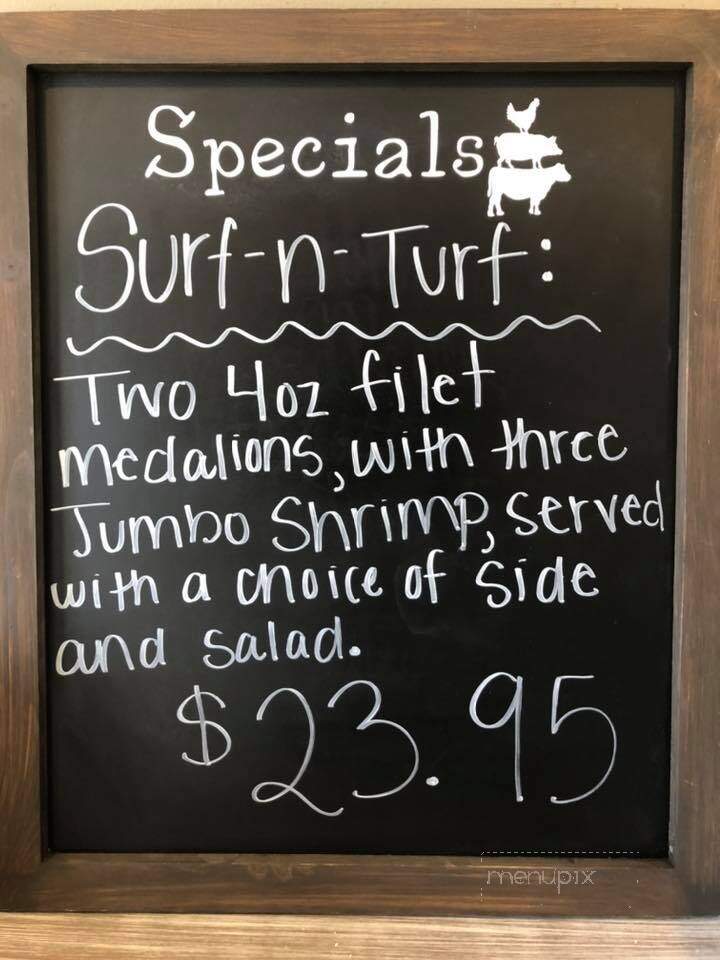 Specials
Surf-n-Turf:
Two 4oz filet
medalions, with three
Jumbo Shrimp, served
with a choice of side
and salad.
$23.95
menupix